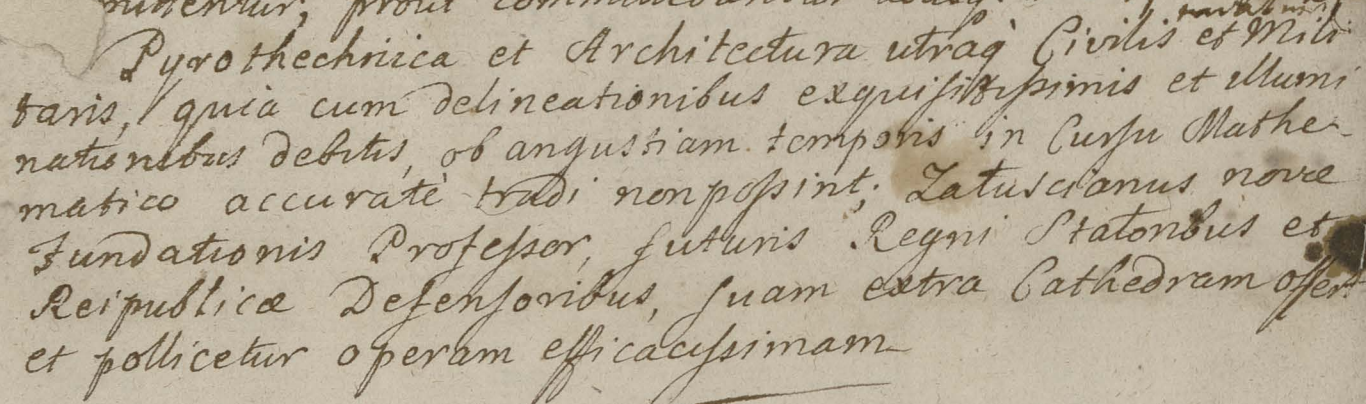 prout
Pyrothechnica et Architectura utraq̀ Civilis et Mili
taris, quia cum delineationibus exquisitissimis et illumi
nationibus debitis, ob angustiam temporis in Cursu Mathe-
matico accuratè tradi non possint; Zatuscianus novæ
Fundationis Professor, futuris Regni Statoribus et
Reipublicæ Defensoribus, suam extra Cathedram offert
et pollicetur operam efficacissimam